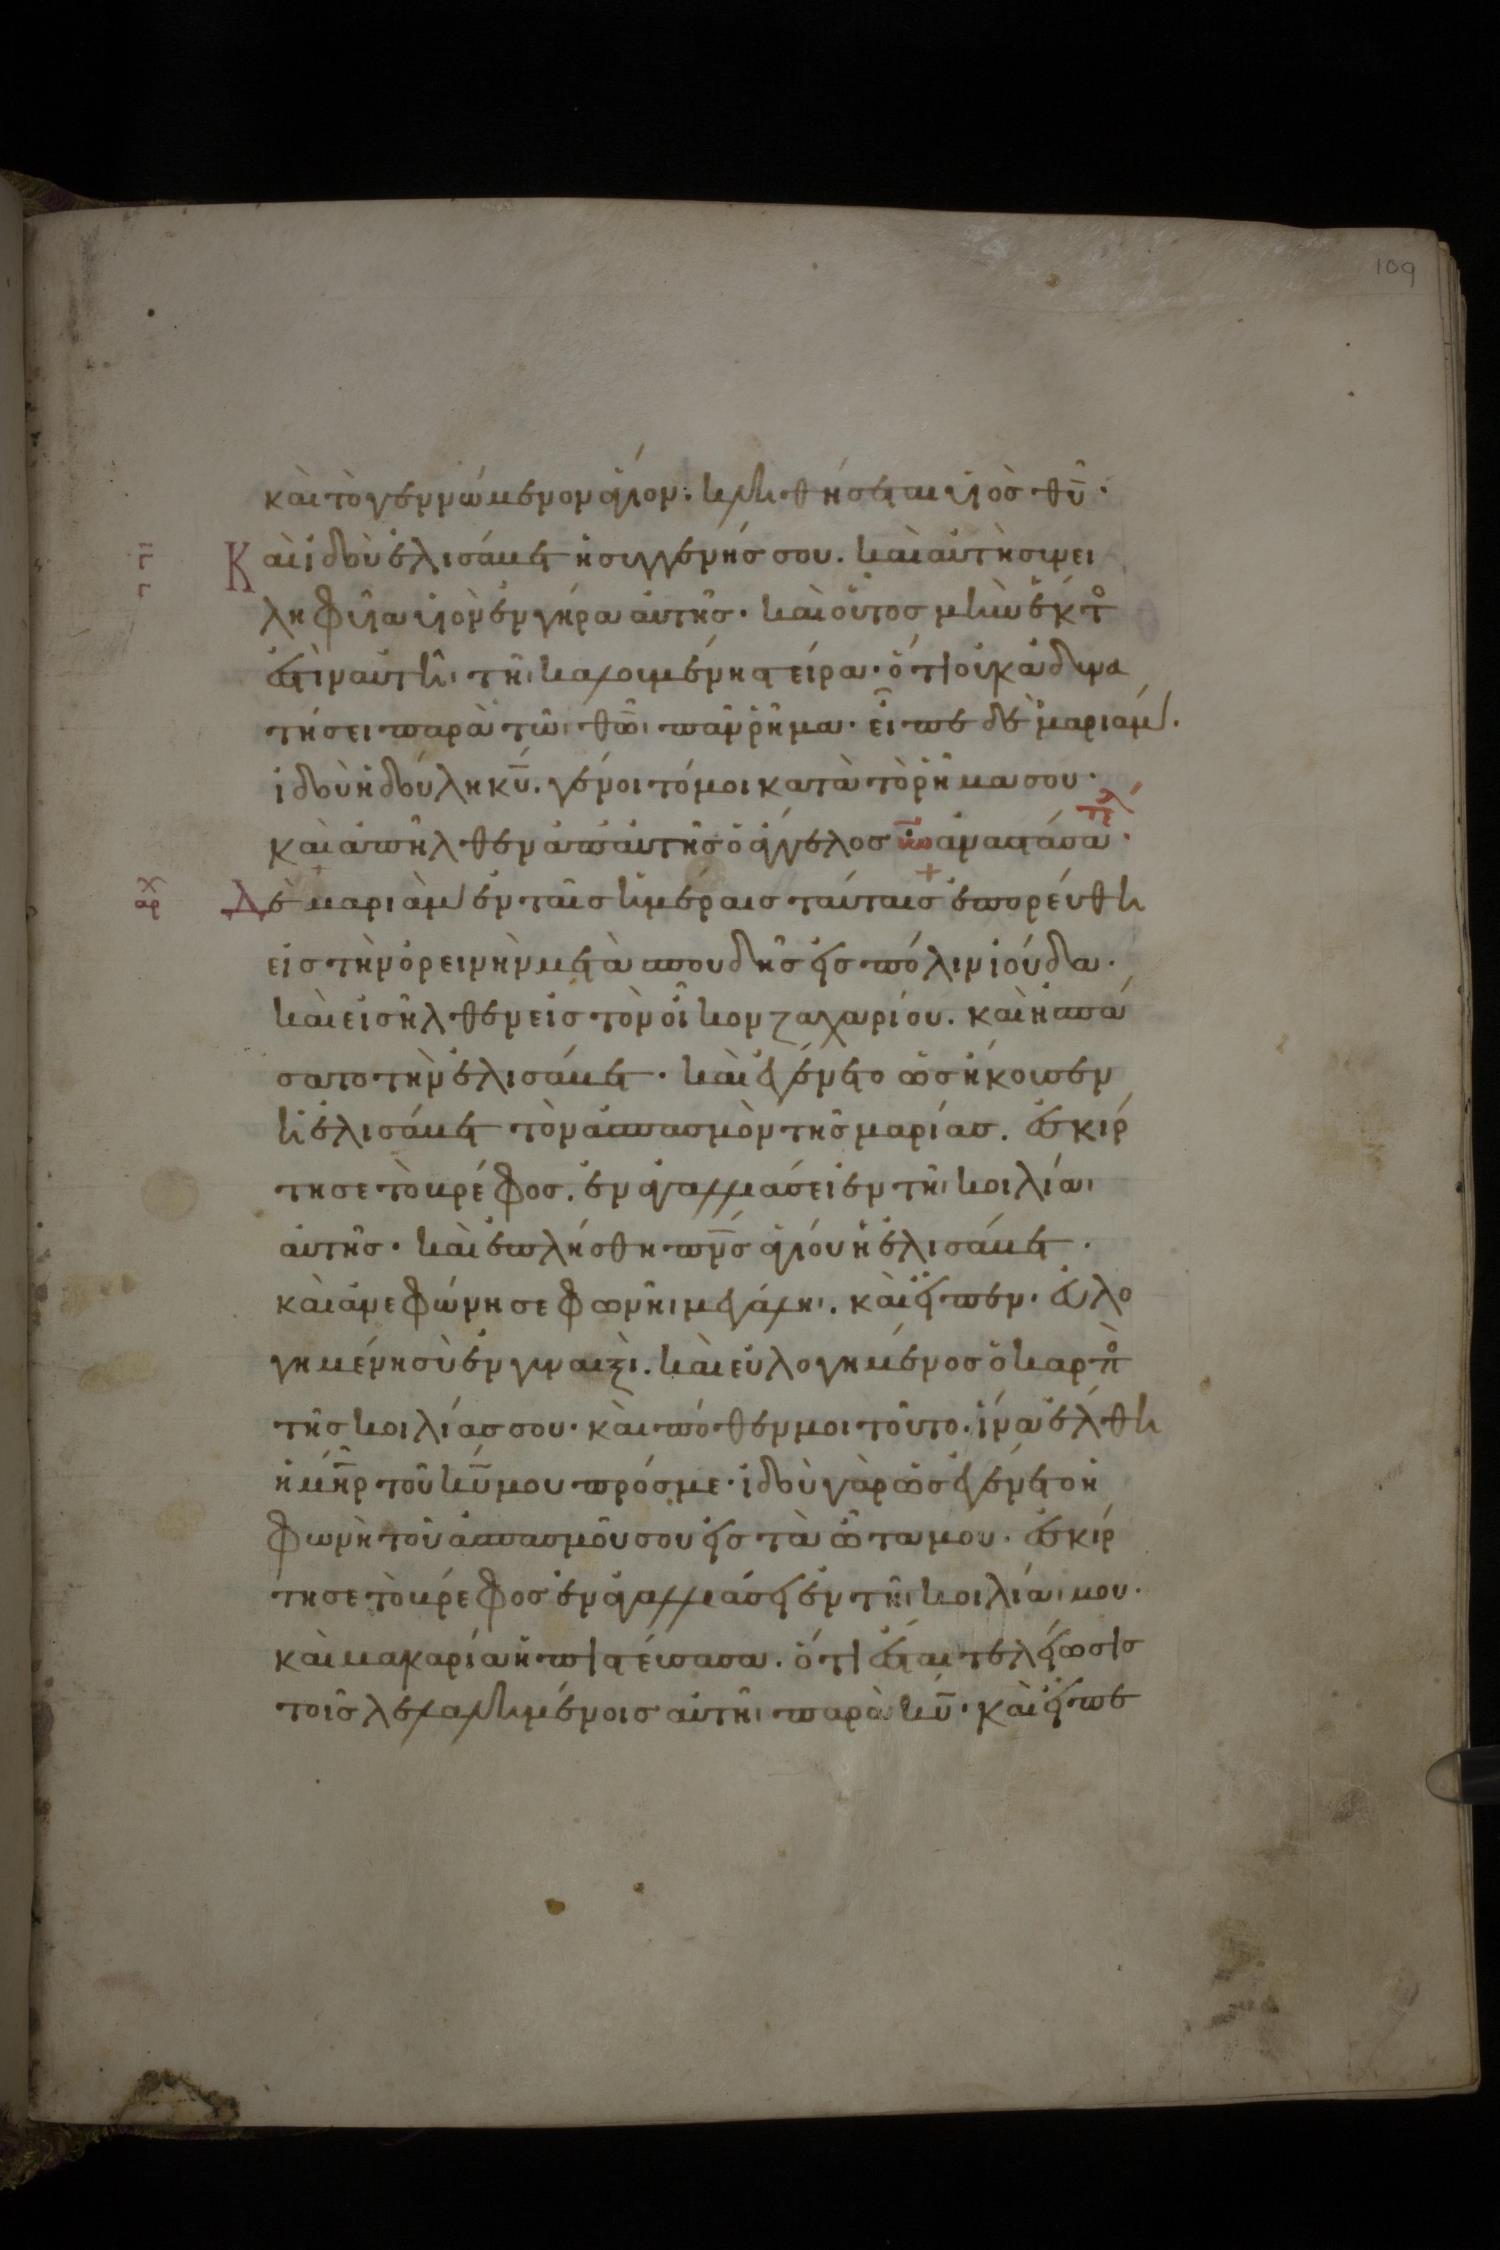 109
καὶ τὸ γεννώμενον ἅγιον· κληθήσεται υἱὸσ θῦ·
Καὶ ἰδοὺ ἐλισάβετ ἡ συγγενήσ σου. καὶ αὐτὴ συνει
ληφυῖα υἱὸν ἐν γήρα αὐτῆσ· καὶ οὗτοσ μὴν ἕκτο
ἐστὶν αὐτῆι τῆι καλουμένη στείρα· ὅτι οὐκ ἀδυνα
τήσει παρὰ τῶι θῶι πᾶν ῥῆμα· εἶπε δὲ μαριάμ.
ἰδοὺ ἡ δούλη κῦ. γένοιτό μοι κατὰ τὸ ῥῆμα σου·
καὶ ἀπῆλθεν ἀπ' αὐτῆσ ὁ ἄγγελοσ ἀναστᾶσα·
τελ
γ
γ
χ
αρ
Δὲ μαριὰμ ἐν ταῖσ ἡμέραισ ταύταισ ἐπορεύθη
εἰσ τὴν ὀρεινὴν μετὰ σπουδῆσ εἰσ πόλιν ἰούδα·
καὶ εἰσῆλθεν εἰσ τὸν οἶκον ζαχαρίου. καὶ ἠσπά
σατο τὴν ἐλισάβετ· καὶ ἐγένετο ὡσ ἤκουσεν
ἡ ἐλισάβετ τὸν ἀσπασμὸν τῆσ μαρίασ. ἐσκίρ
τησε τὸ βρέφοσ. ἐν ἀγαλλιάσει ἐν τῆι κοιλίαι
αὐτῆσ· καὶ ἐπλήσθη πνσ ἁγίου ἡ ἐλισάβετ·
καὶ ἀνεφώνησε φωνῆι μεγάληι. καὶ εἶπεν· εὐλο
γημένη σὺ ἐν γυναιξὶ. καὶ εὐλογημένοσ ὁ καρπὸ
τῆσ κοιλίασ σου· καὶ πόθεν μοι τοῦτο. ἵνα ἔλθη
ἡ μηρ τοῦ κῦ μου πρόσ με· ἰδοὺ γὰρ ὡσ ἐγένετο ἡ
φωνὴ τοῦ ἀσπασμοῦ σου εἰσ τὰ ὦτα μου. ἐσκίρ
τησε τὸ βρέφοσ ἐν ἀγαλλιάσει ἐν τῆι κοιλίαι μου.
καὶ μακαρία ἡ πιστεύσασα. ὅτι ἔσται τελείωσισ
τοῖσ λελαλημένοισ αὐτῆι παρὰ κῦ· καὶ εἶπε